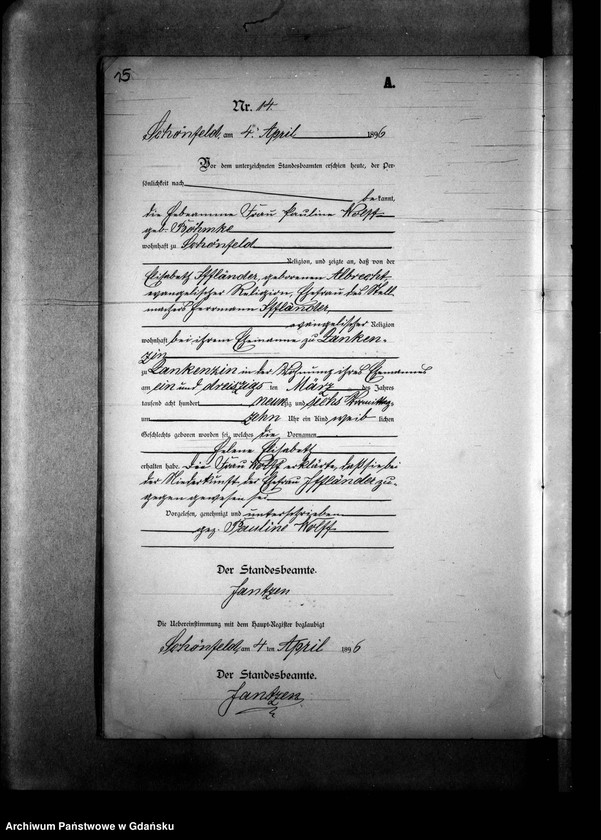 25
A.
Nr. 14
Schönfeld, am 4. April 1896
Vor dem unterzeichneten Standesbeamten erschien heute, der Per-
sönlichkeit nach
be kannt,
die Hebeamme Frau Pauline Kolss
geb. Böhmke
wohnhaft zu Schönfeld
Religion, und zeigte an, daß von der
Elisabeth Iffländer, geborenen Albrecht
evangelischer Religion, Ehefrau des Stell-
machers Herrmann Iffländer,
evangelischer Religion
wohnhaft bei ihrem Ehemanne zu Lanken-
zin
zu Lankenzin in der Wohnung ihres Ehemannes
am ein und dreizigs ten März des Jahres
tausend acht hundert neunzig und sechs Vormittags
um zehn Uhr ein Kind weib lichen
Geschlechts geboren worden sei, welches die Vornamen
Helene Elisabeth
erhalten habe. Die Frau Kolss erklärte, daß sie bei
der Niederkunft der Ehefrau Iffländer zu-
gegen gewesen sei.
Vorgelesen, genehmigt und unterschrieben
gez. Pauline Kolss
Der Standesbeamte.
Jantzen
Die Uebereinstimmung mit dem Haupt-Register beglaubigt
Schönfeld, am 4 ten April 1896
Der Standesbeamte.
Jantzen
Archiwum Państwowe w Gdańsku